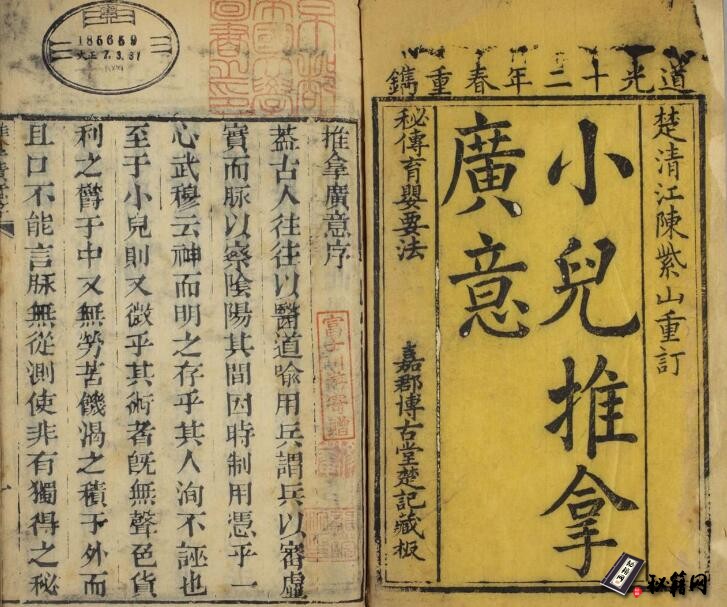 道光十二年春重鐫
楚清江陳紫山重訂
小兒推拿
廣意
秘傳育嬰要法
嘉郡博古堂楚記藏板
推拿廣意序
蓋古人往往以醫道喻用兵謂兵以審虛
實而脉以察陰陽其間因時制用憑乎一
心武穆云神而明之存乎其人洵不誣也
至于小兒則又微乎其術者旣無聲色貨
利之欝于中又無勞苦饑渴之積于外而
且口不能言脉無從測使非有獨得之秘
185659
大正7.3.31
秘籍网